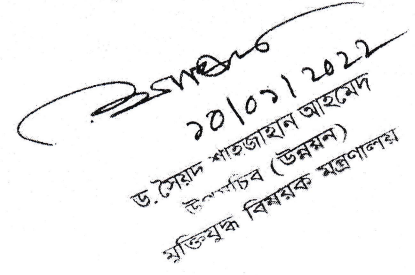 ১০/০১/2022
ড. সৈয়দ শাহজাহান আহমেদ
উপসচিব (উন্নয়ন)
মুক্তিযুদ্ধ বিষয়ক মন্ত্রণালয়